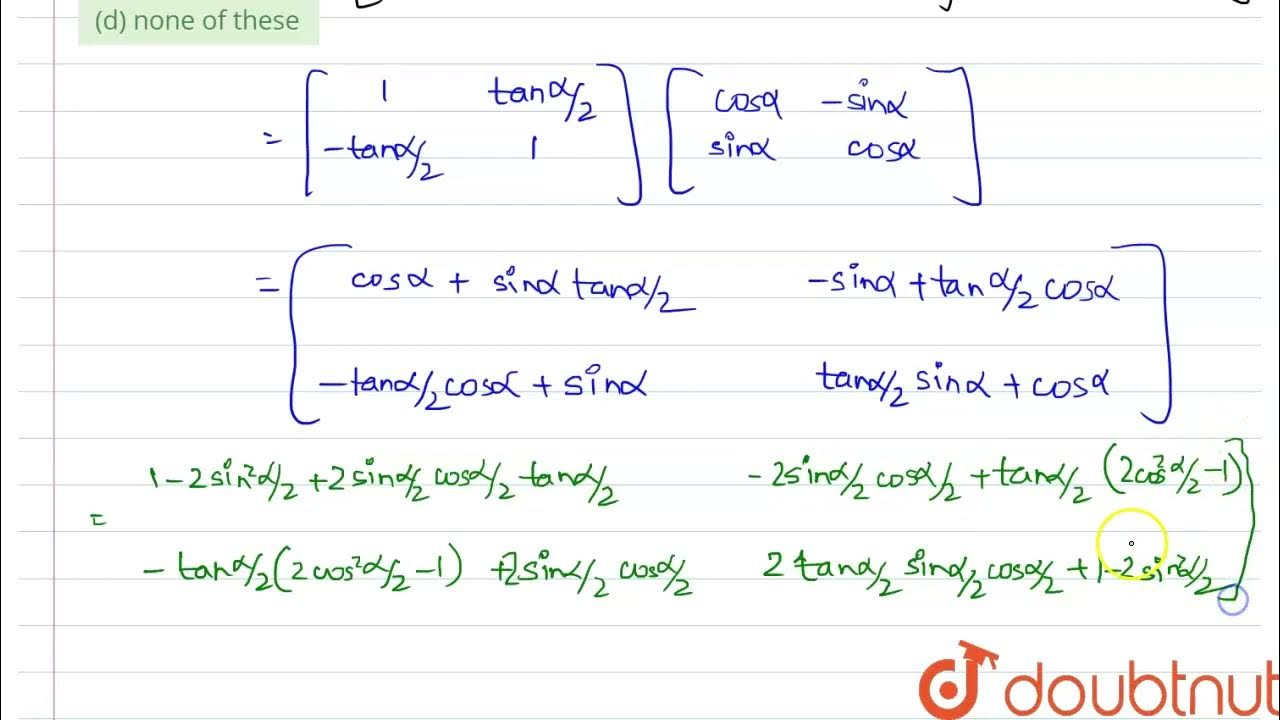 (d) none of these
= [ 1 tanα/2 ] [ cosα -sinα ]
[ -tanα/2 1 ] [ sinα cosα ]
= [ cosα + sinα tanα/2 -sinα + tanα/2 cosα ]
[ -tanα/2 cosα + sinα tanα/2 sinα + cosα ]
1 - 2sin²α/2 + 2sinα/2 cosα/2 tanα/2 -2sinα/2 cosα/2 + tanα/2 (2cos²α/2 - 1) ]
=
-tanα/2 (2cos²α/2 - 1) + 2sinα/2 cosα/2 2 tanα/2 sinα/2 cosα/2 + 1 - 2sin²α/2 ]
doubtnut